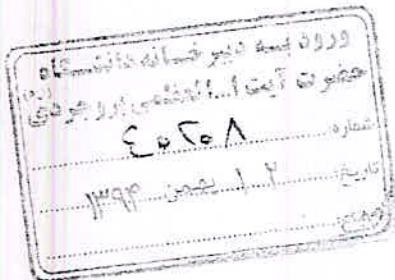 ورود به دبیرخانه دانشگاه
حضرت آیت ا... العظمی بروجردی (ره)
شماره: ۴۰۲۰۸
تاریخ: ۱۲ بهمن ۱۳۹۴